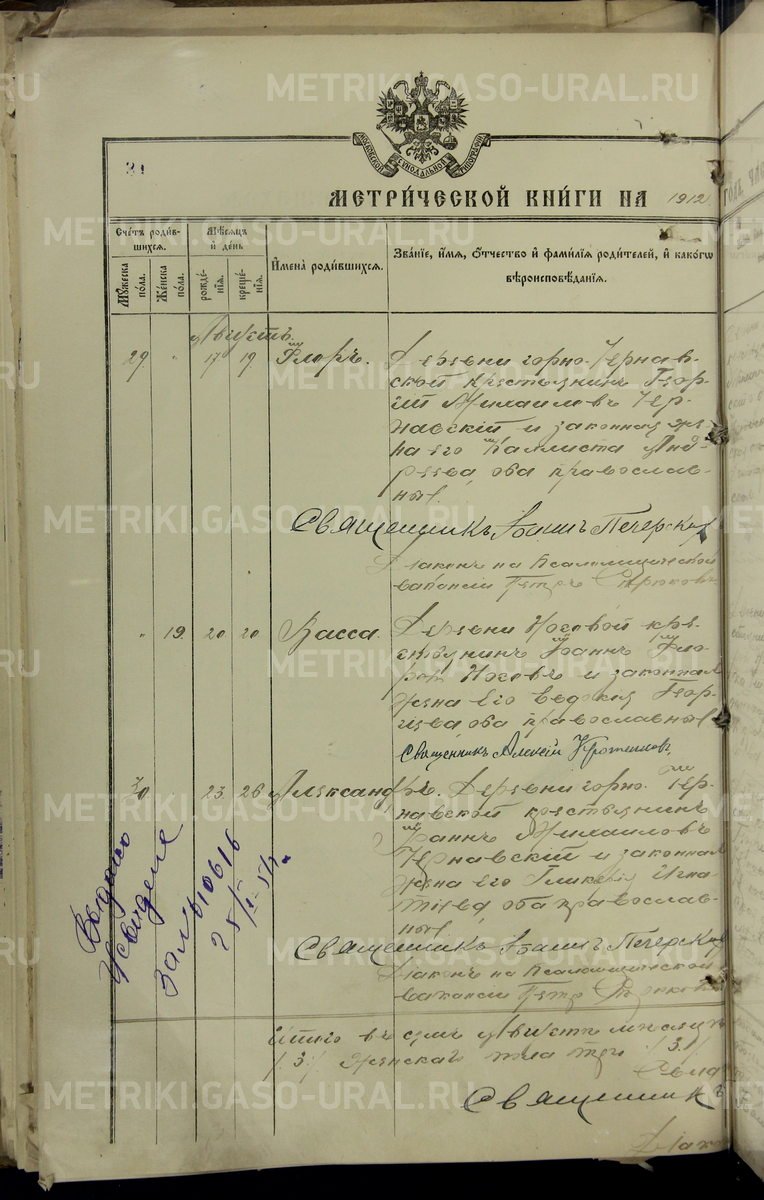 METRIKI.GASO-URAL.RU
МОСКОВСКОЙ СѴНОДАЛЬНОЙ ТИПОГРАФІИ
МЕТРИ́ЧЕСКОЙ КНИ́ГИ НА 1912
Счетъ роди́вшихся.
Му́жеска по́ла.
Же́нска по́ла.
Мѣсяцъ и день
рожде́нія.
креще́нія.
Имена̀ роди́вшихся.
Зва́ніе, и́мя, о́тчество и фами́лія роди́телей, и како́гѡ вѣроисповѣ́данія.
Августъ.
29 " 17 19 Флоръ.
Деревни Горно-Чернав-
ской крестьянинъ Геор-
гій Михаиловъ Чер-
навскій и законная же-
на его Каллиста Анд-
реева, оба православ-
ныѣ.
Священникъ Іоаннъ Печерскій
Діаконъ на псаломщической
вакансіи Петръ
" 19. 20 20 Васса.
Деревни Носовой кре-
стьянинъ Іоаннъ Фло-
ровъ Носовъ и законная
жена его Евдокія Геор-
гіева оба православныѣ
Священникъ Алексій
30 23 26 Александръ.
Деревни Горно-Чер-
навской крестьянинъ
Іоаннъ Михаиловъ
Чернавскій и законная
жена его Гликерія Игна-
тіева, оба православ-
ныѣ.
Священникъ Іоаннъ Печерскій
Діаконъ на псаломщической
вакансіи Петръ
Выдано
свидете
010616
Итого въ семъ Августѣ мѣсяцѣ
/3/ Женскаго пола три /3./
Священник
Діако